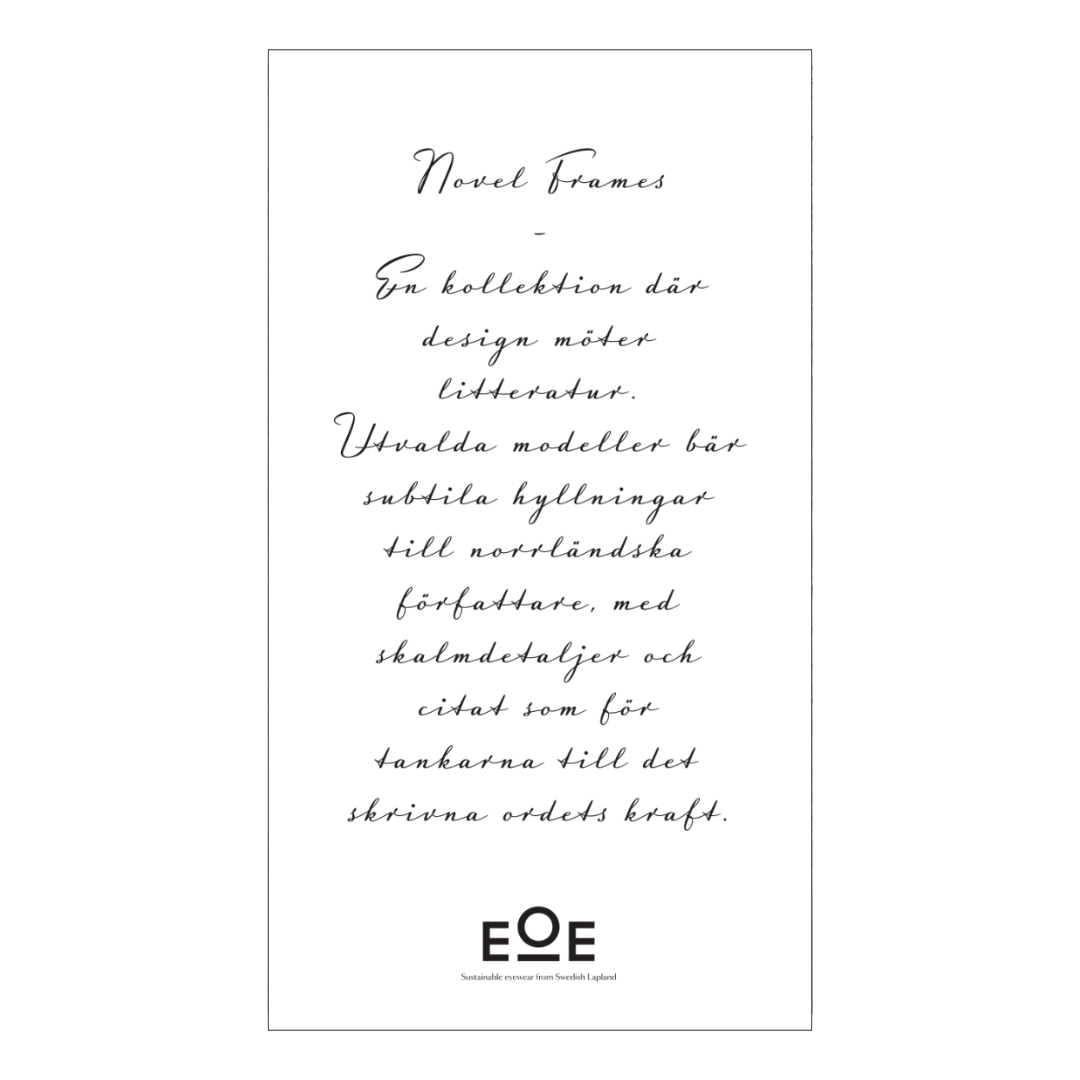 Novel Frames
-
En kollektion där
design möter
litteratur.
Utvalda modeller bär
subtila hyllningar
till norrländska
författare, med
skalmdetaljer och
citat som för
tankarna till det
skrivna ordets kraft.
EOE
Sustainable eyewear from Swedish Lapland